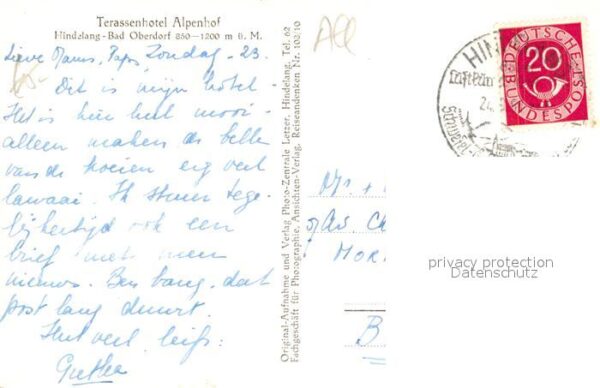 Terassenhotel Alpenhof
Hindelang-Bad Oberdorf 850–1200 m ü. M.
Lieve Mams, Paps, Zondag - 23.
Dit is mijn hotel-
Het is hier heel mooi-
alleen maken de bellen
van de koeien erg veel
lawaai. Ik stuur tege-
lijkertijd ook een
brief met meer
nieuws. Ben bang, dat
post lang duurt.
Heel veel liefs:
Original-Aufnahme und Verlag Photo-Zentrale Letzer, Hindelang, Tel. 62
Fachgeschäft für Photographie, Ansichten-Verlag, Reiseandenken Nr. 102/10
DEUTSCHE
BUNDESPOST
20
HIN
B
privacy protection
Datenschutz